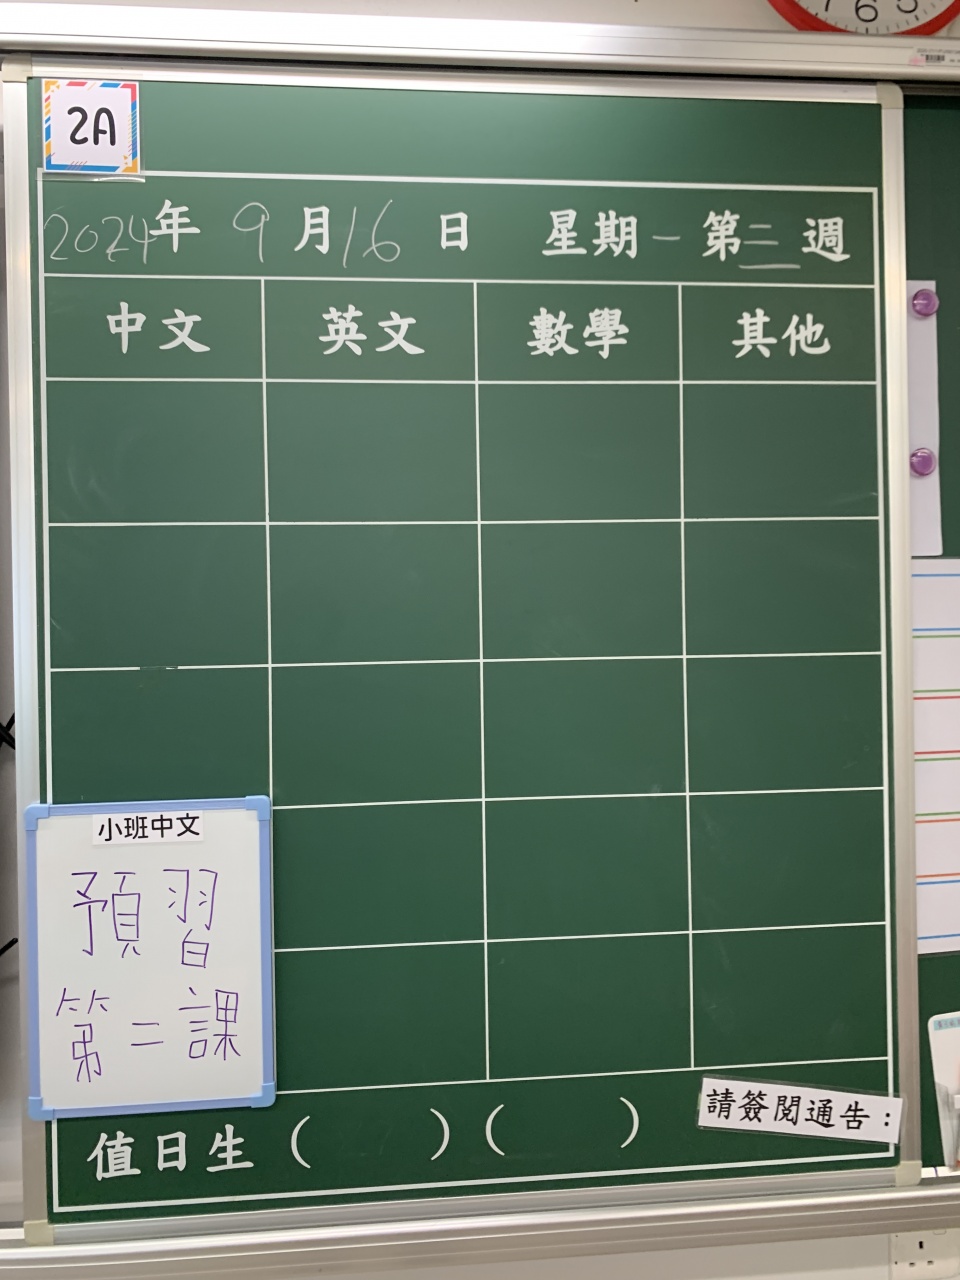 2A
2024年 9月16日 星期一 第二週
中文 英文 數學 其他
小班中文
預習
第二課
請簽閱通告：
值日生（ ）（ ）